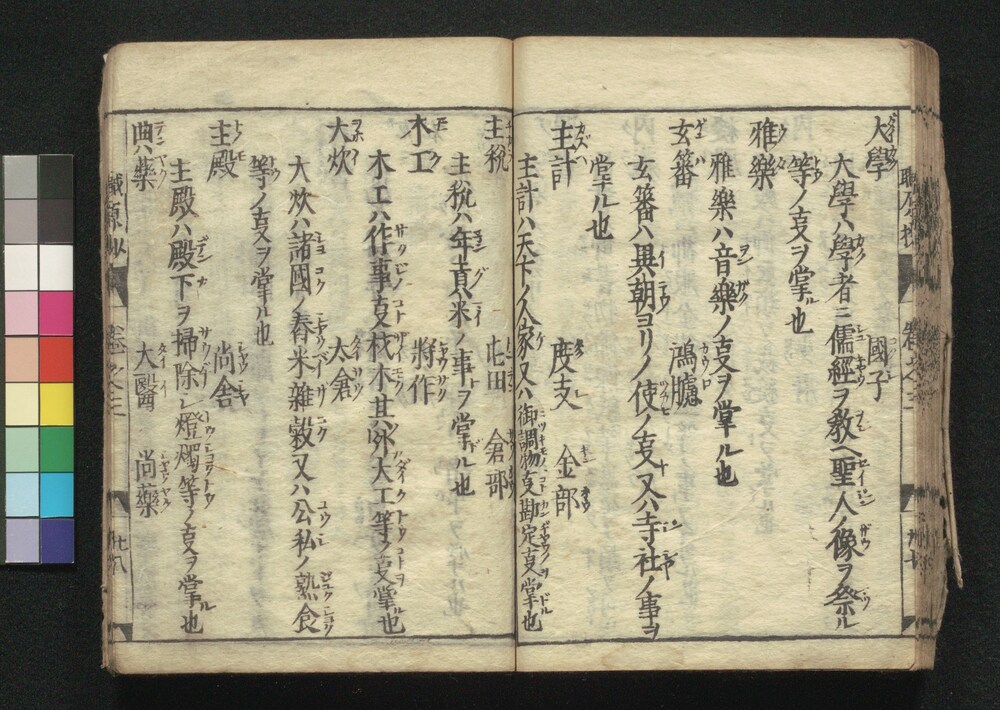 大學 國子
大學ハ學者ニ儒經ヲ教へ聖人ノ像ヲ祭ル
等ノ支ヲ掌ル也
雅樂
雅樂ハ音樂ノ支ヲ掌ル也
玄蕃 鴻臚
玄蕃ハ異朝ヨリノ使ノ支又ハ寺社ノ事ヲ
掌ル也
主計 度支 金部
主計ハ天下ノ人家又ハ御調物支勘定支掌也
主税 屯田 倉部
主税ハ年貢米ノ事ヲ掌ル也
木工 將作
木工ハ作事支材木其外大工等ノ支掌ル也
大炊 太倉
大炊ハ諸國ノ舂米雜穀又ハ公私ノ熟食
等ノ支ヲ掌ル也
主殿 尚舎
主殿ハ殿下ヲ掃除シ燈燭等ノ支ヲ掌ル也
典藥 大醫 尚藥